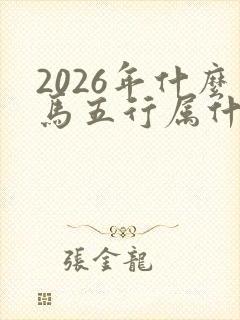 2026年什麽
馬五行属什
張金龍